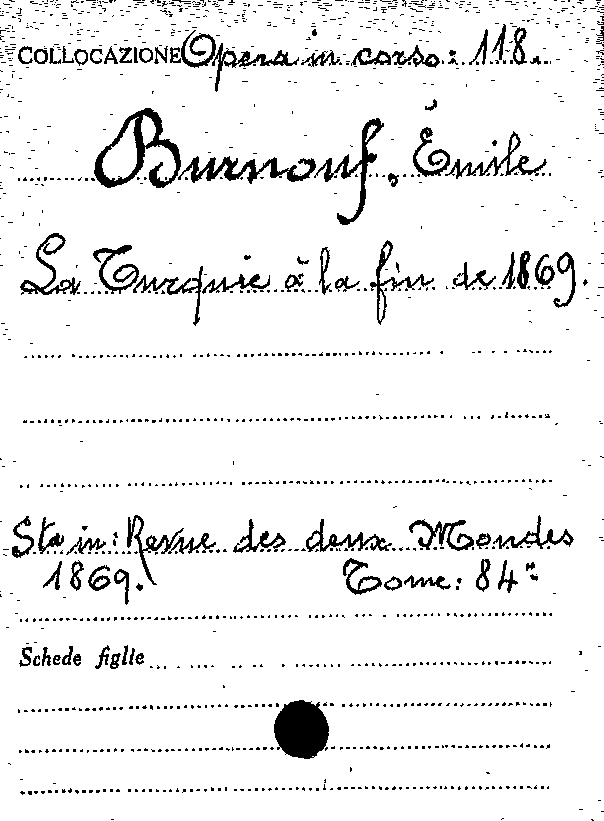 COLLOCAZIONE Opera in corso: 118.
Burnouf, Émile
La Turquie à la fin de 1869.
Sta in: Revue des deux Mondes
1869. Tome: 84º
Schede figlie